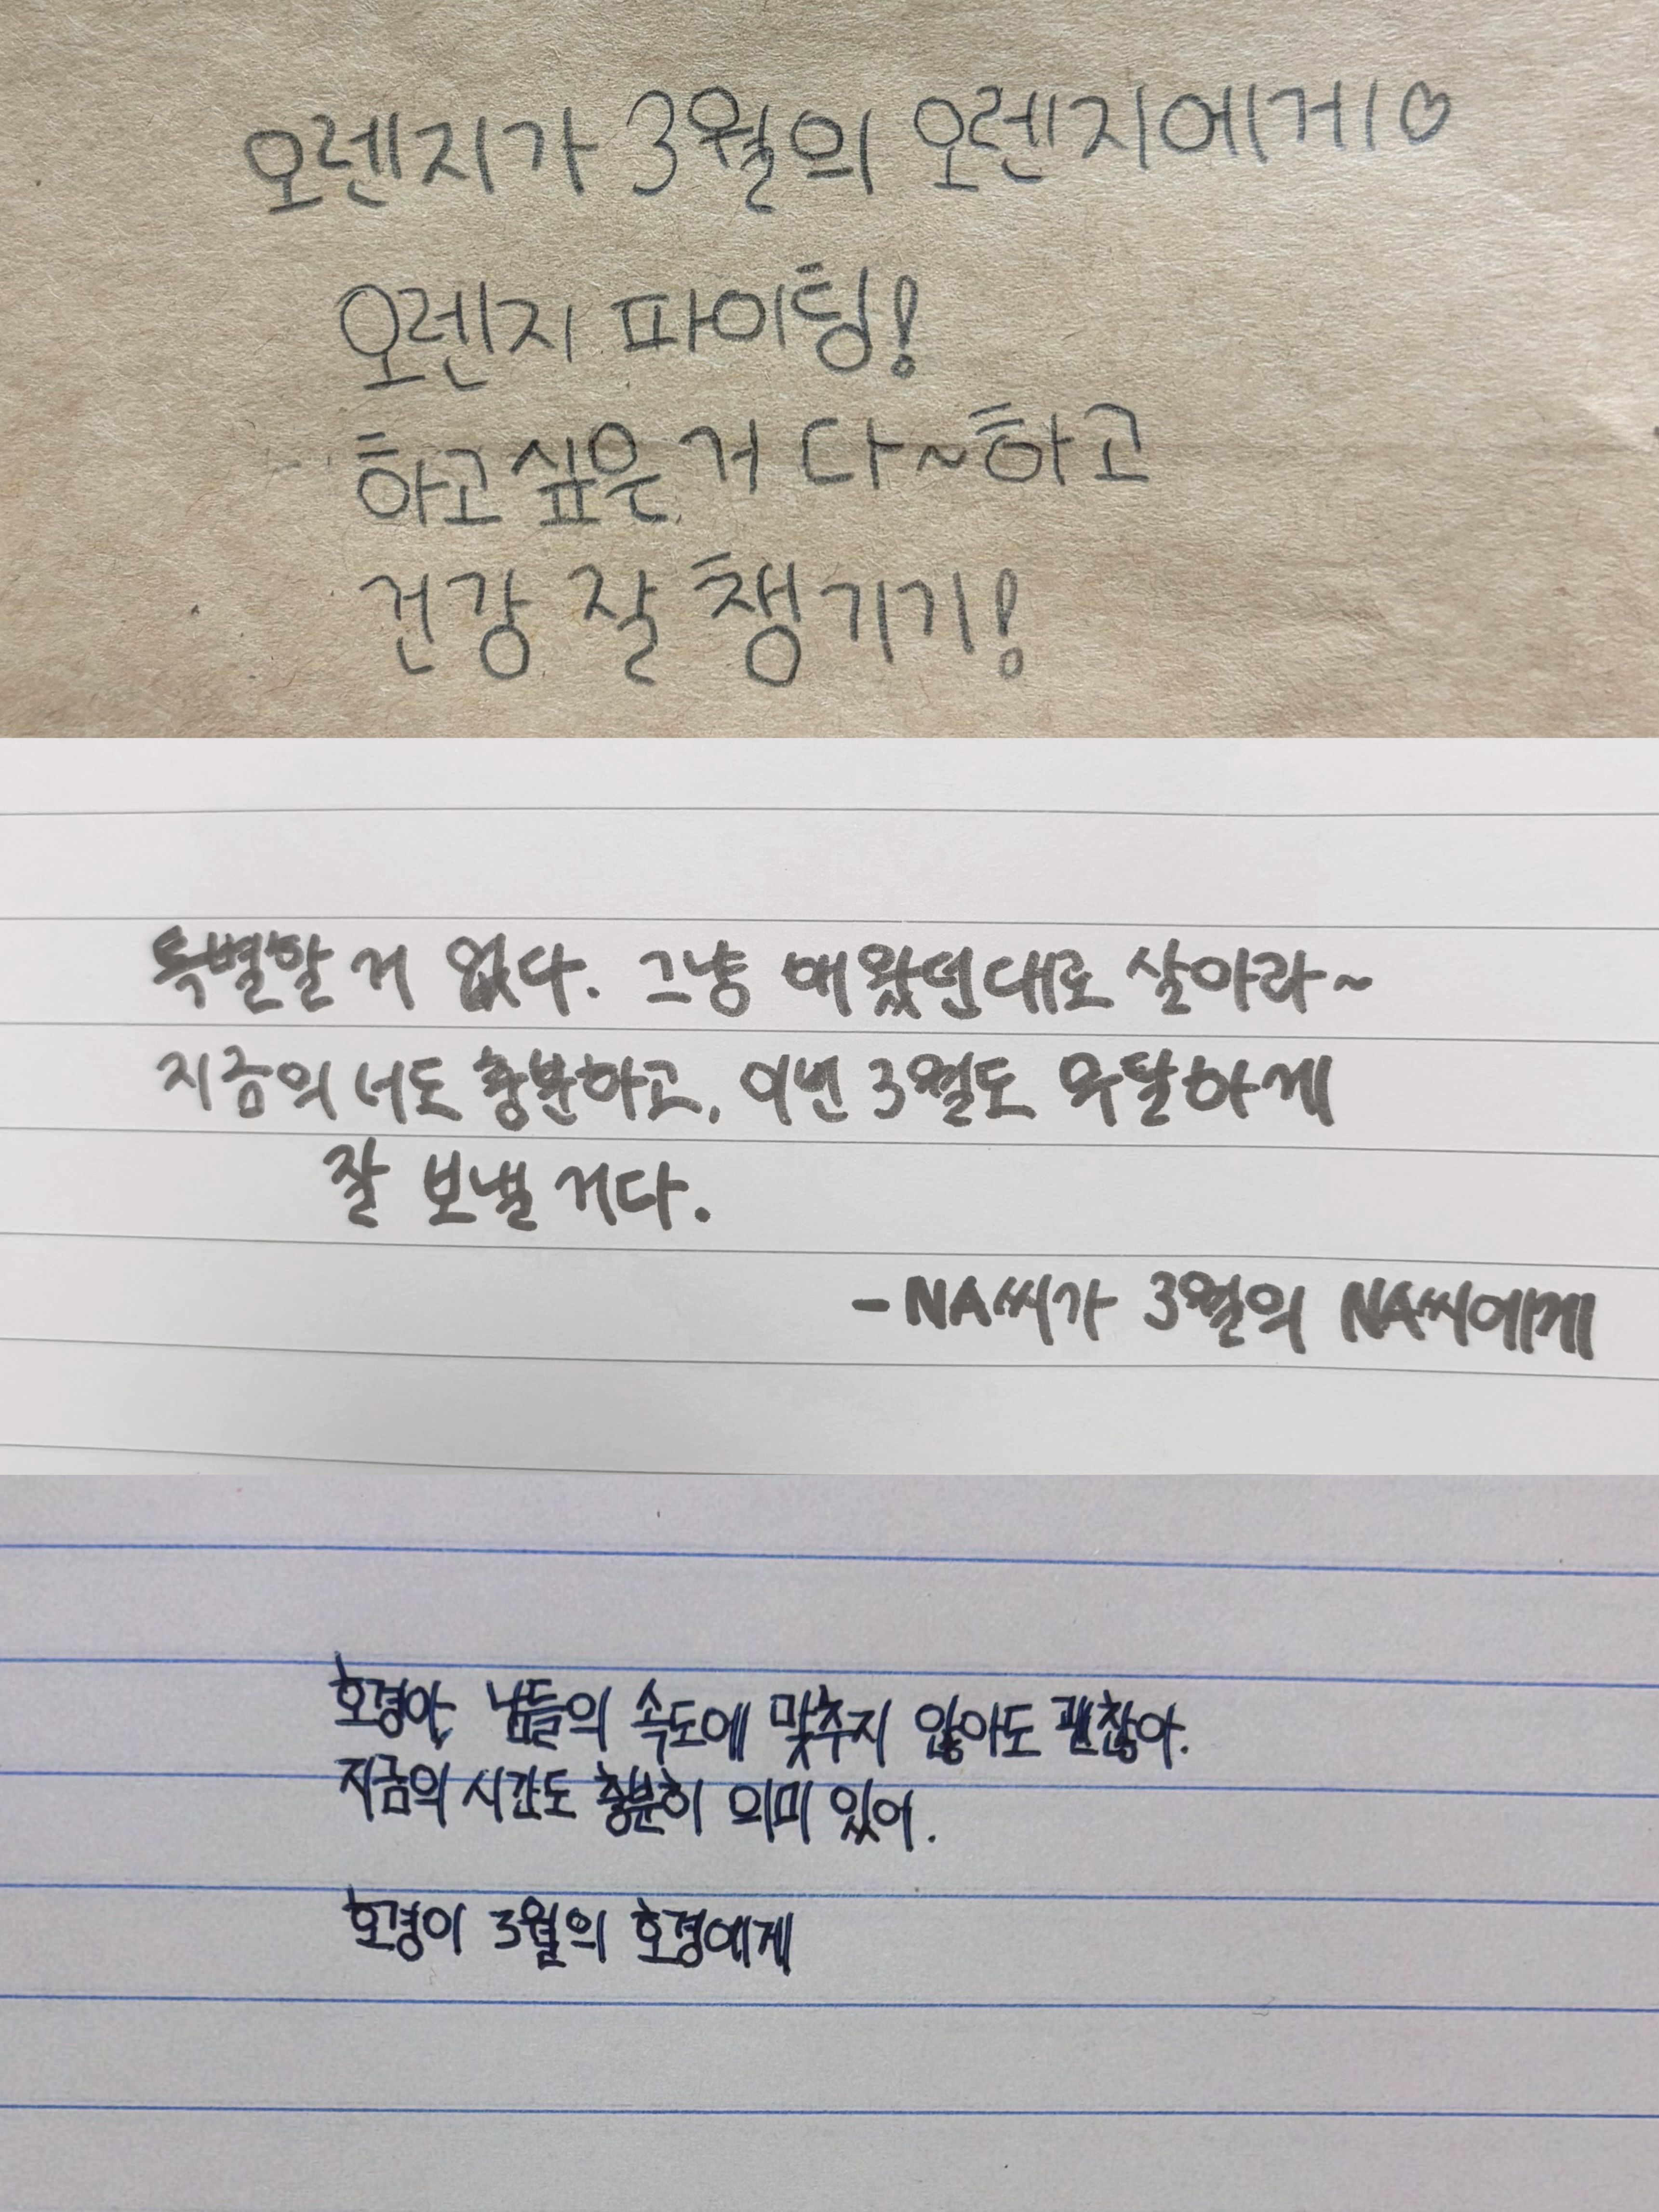 오렌지가 3월의 오렌지에게♡
오렌지 파이팅!
하고싶은 거 다~하고
건강 잘 챙기기!
특별할 거 없다. 그냥 해왔던대로 살아라~
지금의 너도 충분하고, 이번 3월도 무탈하게
잘 보낼 거다.
-NA씨가 3월의 NA씨에게
호경아, 남들의 속도에 맞추지 않아도 괜찮아.
지금의 시간도 충분히 의미 있어.
호경이 3월의 호경에게